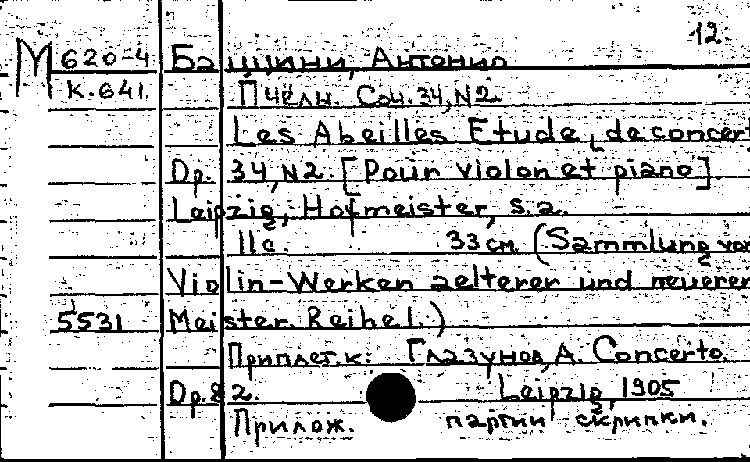 12
М 620-4 Баццини, Антонио
К.641. Пчелы. Соч. 34, N2.
Les Abeilles Etude de concert
Op. 34, N2. [Pour violon et piano].
Leipzig, Hofmeister, s.a.
11с. 33см. (Sammlung von
Violin-Werken aelterer und neuerer
5531 Meister. Reihe I.)
Приплет. к: Глазунов, А. Concerto.
Op. 82. Leipzig, 1905
Прилож. партии скрипки.